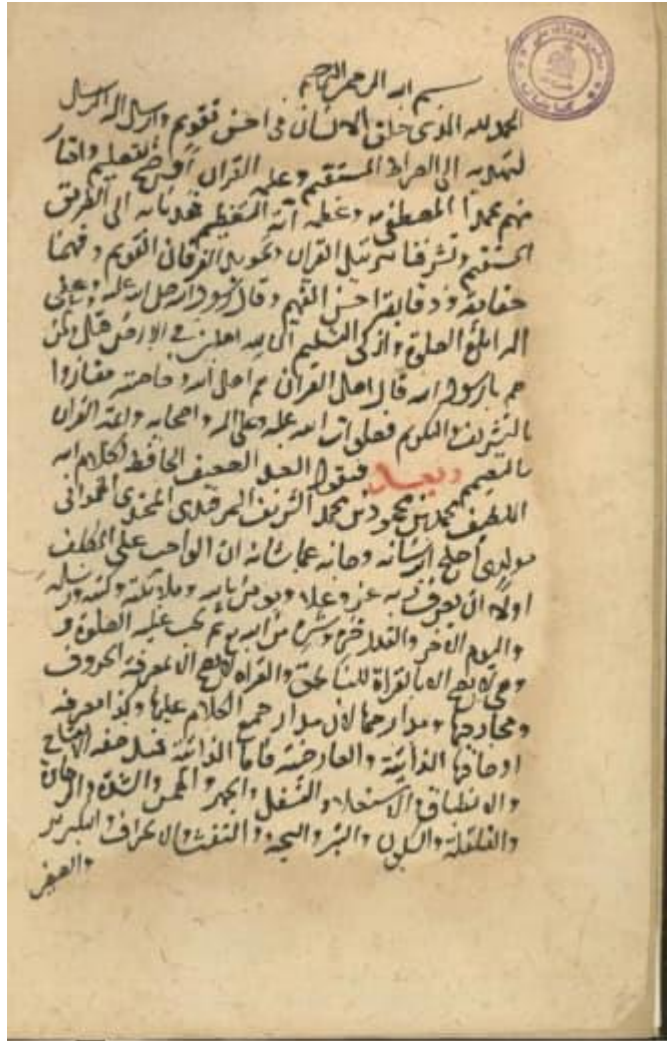 بسم الله الرحمن الرحيم
الحمد لله الذى خلق الانسان فى احسن تقويم وارسل اليه الرسل
لتهديه الى الصراط المستقيم وعلمه القران افصح التعليم واختار
منهم محمدا المصطفى وعظمه آية التعظيم فهدانا به الى الطريق
المستقيم وتشرفنا بترتيل القران وتجويد الفرقان القويم وفهمنا
حقايقه ودقايقه احسن التفهيم وقال رسول الله صلى الله عليه وعلى
اله الصلوة وازكى التسليم ان لله اهلين فى الارض قيل ومن
هم يا رسول الله قال اهل القران هم اهل الله وخاصته ففازوا
بالتشريف والتكريم فصلوات الله عليه وعلى اله واصحابه وائمة القران
بالتعميم وبعد فيقول العبد الضعيف الحافظ لكلام الله
اللطيف محمد بن محمود بن محمد الشريف السمرقندى الهمدانى
مولدى اصلح الله شانه وصانه عما شانه ان الواجب على المكلف
اولا ان يعرف ربه عز وعلا ويومن بالله وملائكته وكتبه ورسله
واليوم الاخر والقدر خيره وشره من الله ثم تجب عليه الصلوة و
هى لا يصح الا بالقراة للناطق والقراة لا يصح الا بمعرفة الحروف
ومخارجها ومدارجها لان مدار جميع الكلام عليها وكذا معرفة
اوصافها الذاتية والعارضة فاما الذاتية فمثل صفة الانفتاح
والانطباق والاستعلا والتسفل والجهر والهمس والشدة والرخاوة
والقلقلة والسكون والنبر والبحة والنفث والانحراف والتكرير
والصفير